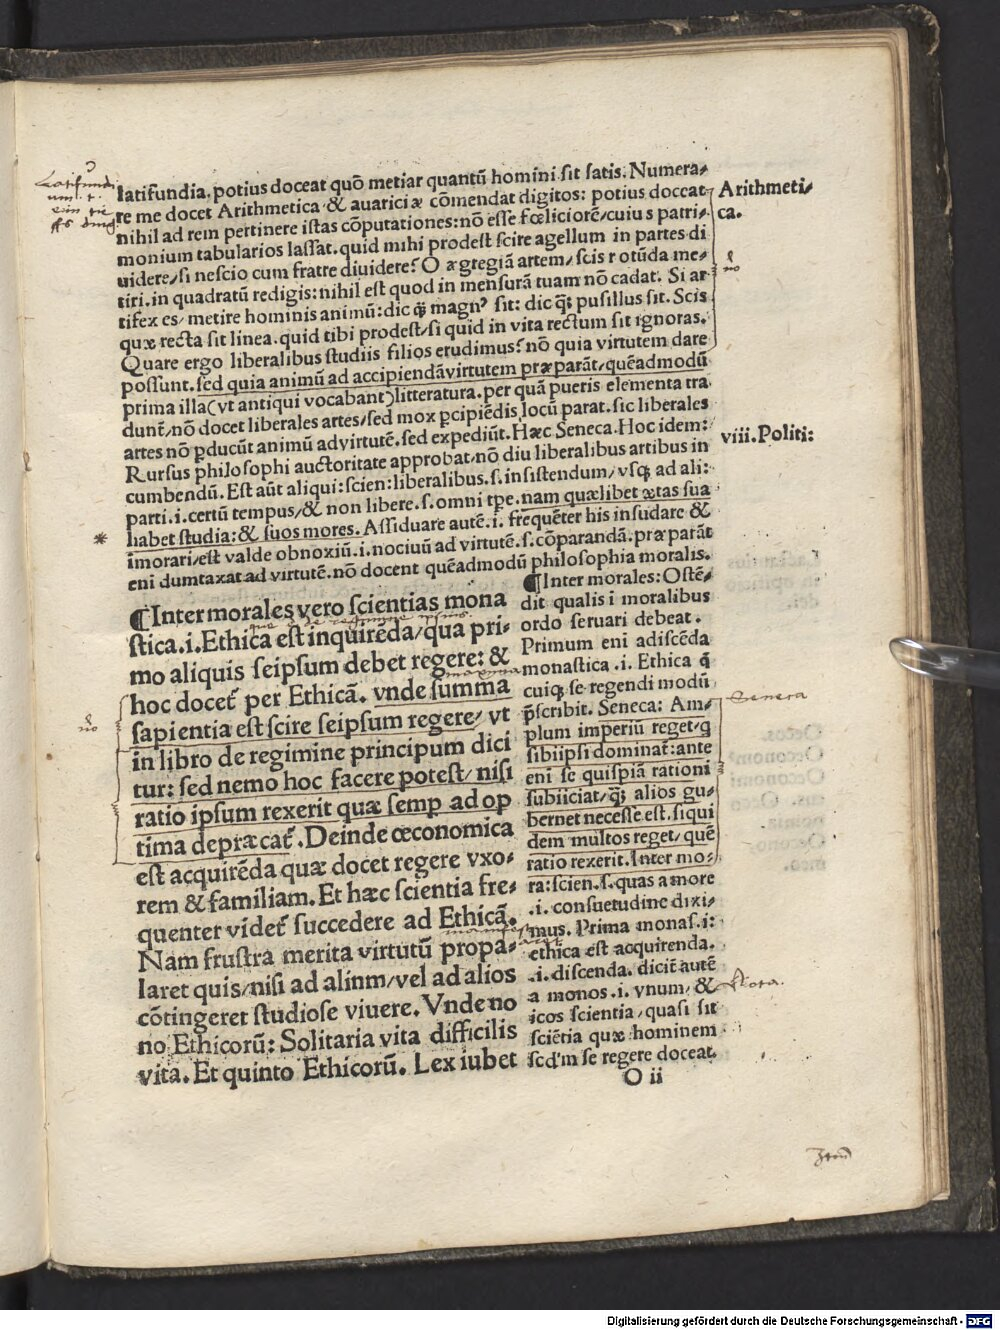 latifundia, potius doceat quō metiar quantū homini sit satis. Numera⸗
re me docet Arithmetica & auariciæ cōmendat digitos: potius doceat
nihil ad rem pertinere istas cōputationes: nō esse fœliciorē/cuius patri⸗
monium tabularios lassat. quid mihi prodest scire agellum in partes di
uidere/si nescio cum fratre diuidere? O ægregiā artem/ scis rotūda me⸗
tiri. in quadratū redigis: nihil est quod in mensurā tuam nō cadat. Si ar
tifex es/ metire hominis animū: dic q̄ magn⁹ sit: dic qꝫ pusillus sit. Scis
quæ recta sit linea. quid tibi prodest/si quid in vita rectum sit ignoras.
Quare ergo liberalibus studiis filios erudimus? nō quia virtutem dare
possunt. sed quia animū ad accipiendā virtutem præparāt/ quēadmodū
prima illa (vt antiqui vocabant) litteratura. per quā pueris elementa tra
dunt̄/nō docet liberales artes/sed mox ꝑcipiēdis locū parat. sic liberales
artes nō ꝑducūt animū ad virtutē. sed expediūt. Hæc Seneca. Hoc idem:
Rursus philosophi auctoritate approbat/nō diu liberalibus artibus in
cumbendū. Est aūt aliqui: scien: liberalibus. s. insistendum/ vsqꝫ ad ali:
parti. i. certū tempus/& non libere. s. omni tꝑe. nam quælibet ætas sua
habet studia: & suos mores. Assiduare autē. i. frequēter his insudare &
īmorari/est valde obnoxiū. i. nociuū ad virtutē. s. cōparandā. præparāt
eni dumtaxat ad virtutē. nō docent quēadmodū philosophia moralis.
Arithmeti⸗
ca.
viii. Politi:
¶Inter morales vero scientias mona
stica. i. Ethica est inquirēda/qua pri⸗
mo aliquis seipsum debet regere: &
hoc docet̄ per Ethicā. vnde summa
sapientia est scire seipsum regere/ vt
in libro de regimine principum dici
tur: sed nemo hoc facere potest/ nisi
ratio ipsum rexerit quæ semꝑ ad op
tima depræcat̄. Deinde œconomica
est acquirēda quæ docet regere vxo⸗
rem & familiam. Et hæc scientia fre⸗
quenter videt̄ succedere ad Ethicā.
Nam frustra merita virtutū propa⸗
laret quis/nisi ad alinm/vel ad alios
cōtingeret studiose viuere. Vnde no
no Ethicorū: Solitaria vita difficilis
vita. Et quinto Ethicorū. Lex iubet
¶Inter morales: Ostē⸗
dit qualis i moralibus
ordo seruari debeat.
Primum eni adiscēda
monastica . i. Ethica q̄
cuiqꝫ se regendi modū
p̄scribit. Seneca: Am⸗
plum imperiū reget/q
sibiipsi dominat̄: ante
eni se quispiā rationi
subiiciat/qꝫ alios gu⸗
bernet necesse est. si qui
dem multos reget/ quē
ratio rexerit. Inter mo⸗
ra: scien. s. quas a more
. i. consuetudine dixi⸗
mus. Prima monas. i:
ethica est acquirenda.
. i. discenda. dicit̄ autē
a monos. i. vnum/ &
icos scientia/ quasi sit
sciētia quæ hominem
scd'm se regere doceat.
O ii
Seneca
Nota.
Digitalisierung gefördert durch die Deutsche Forschungsgemeinschaft - DFG